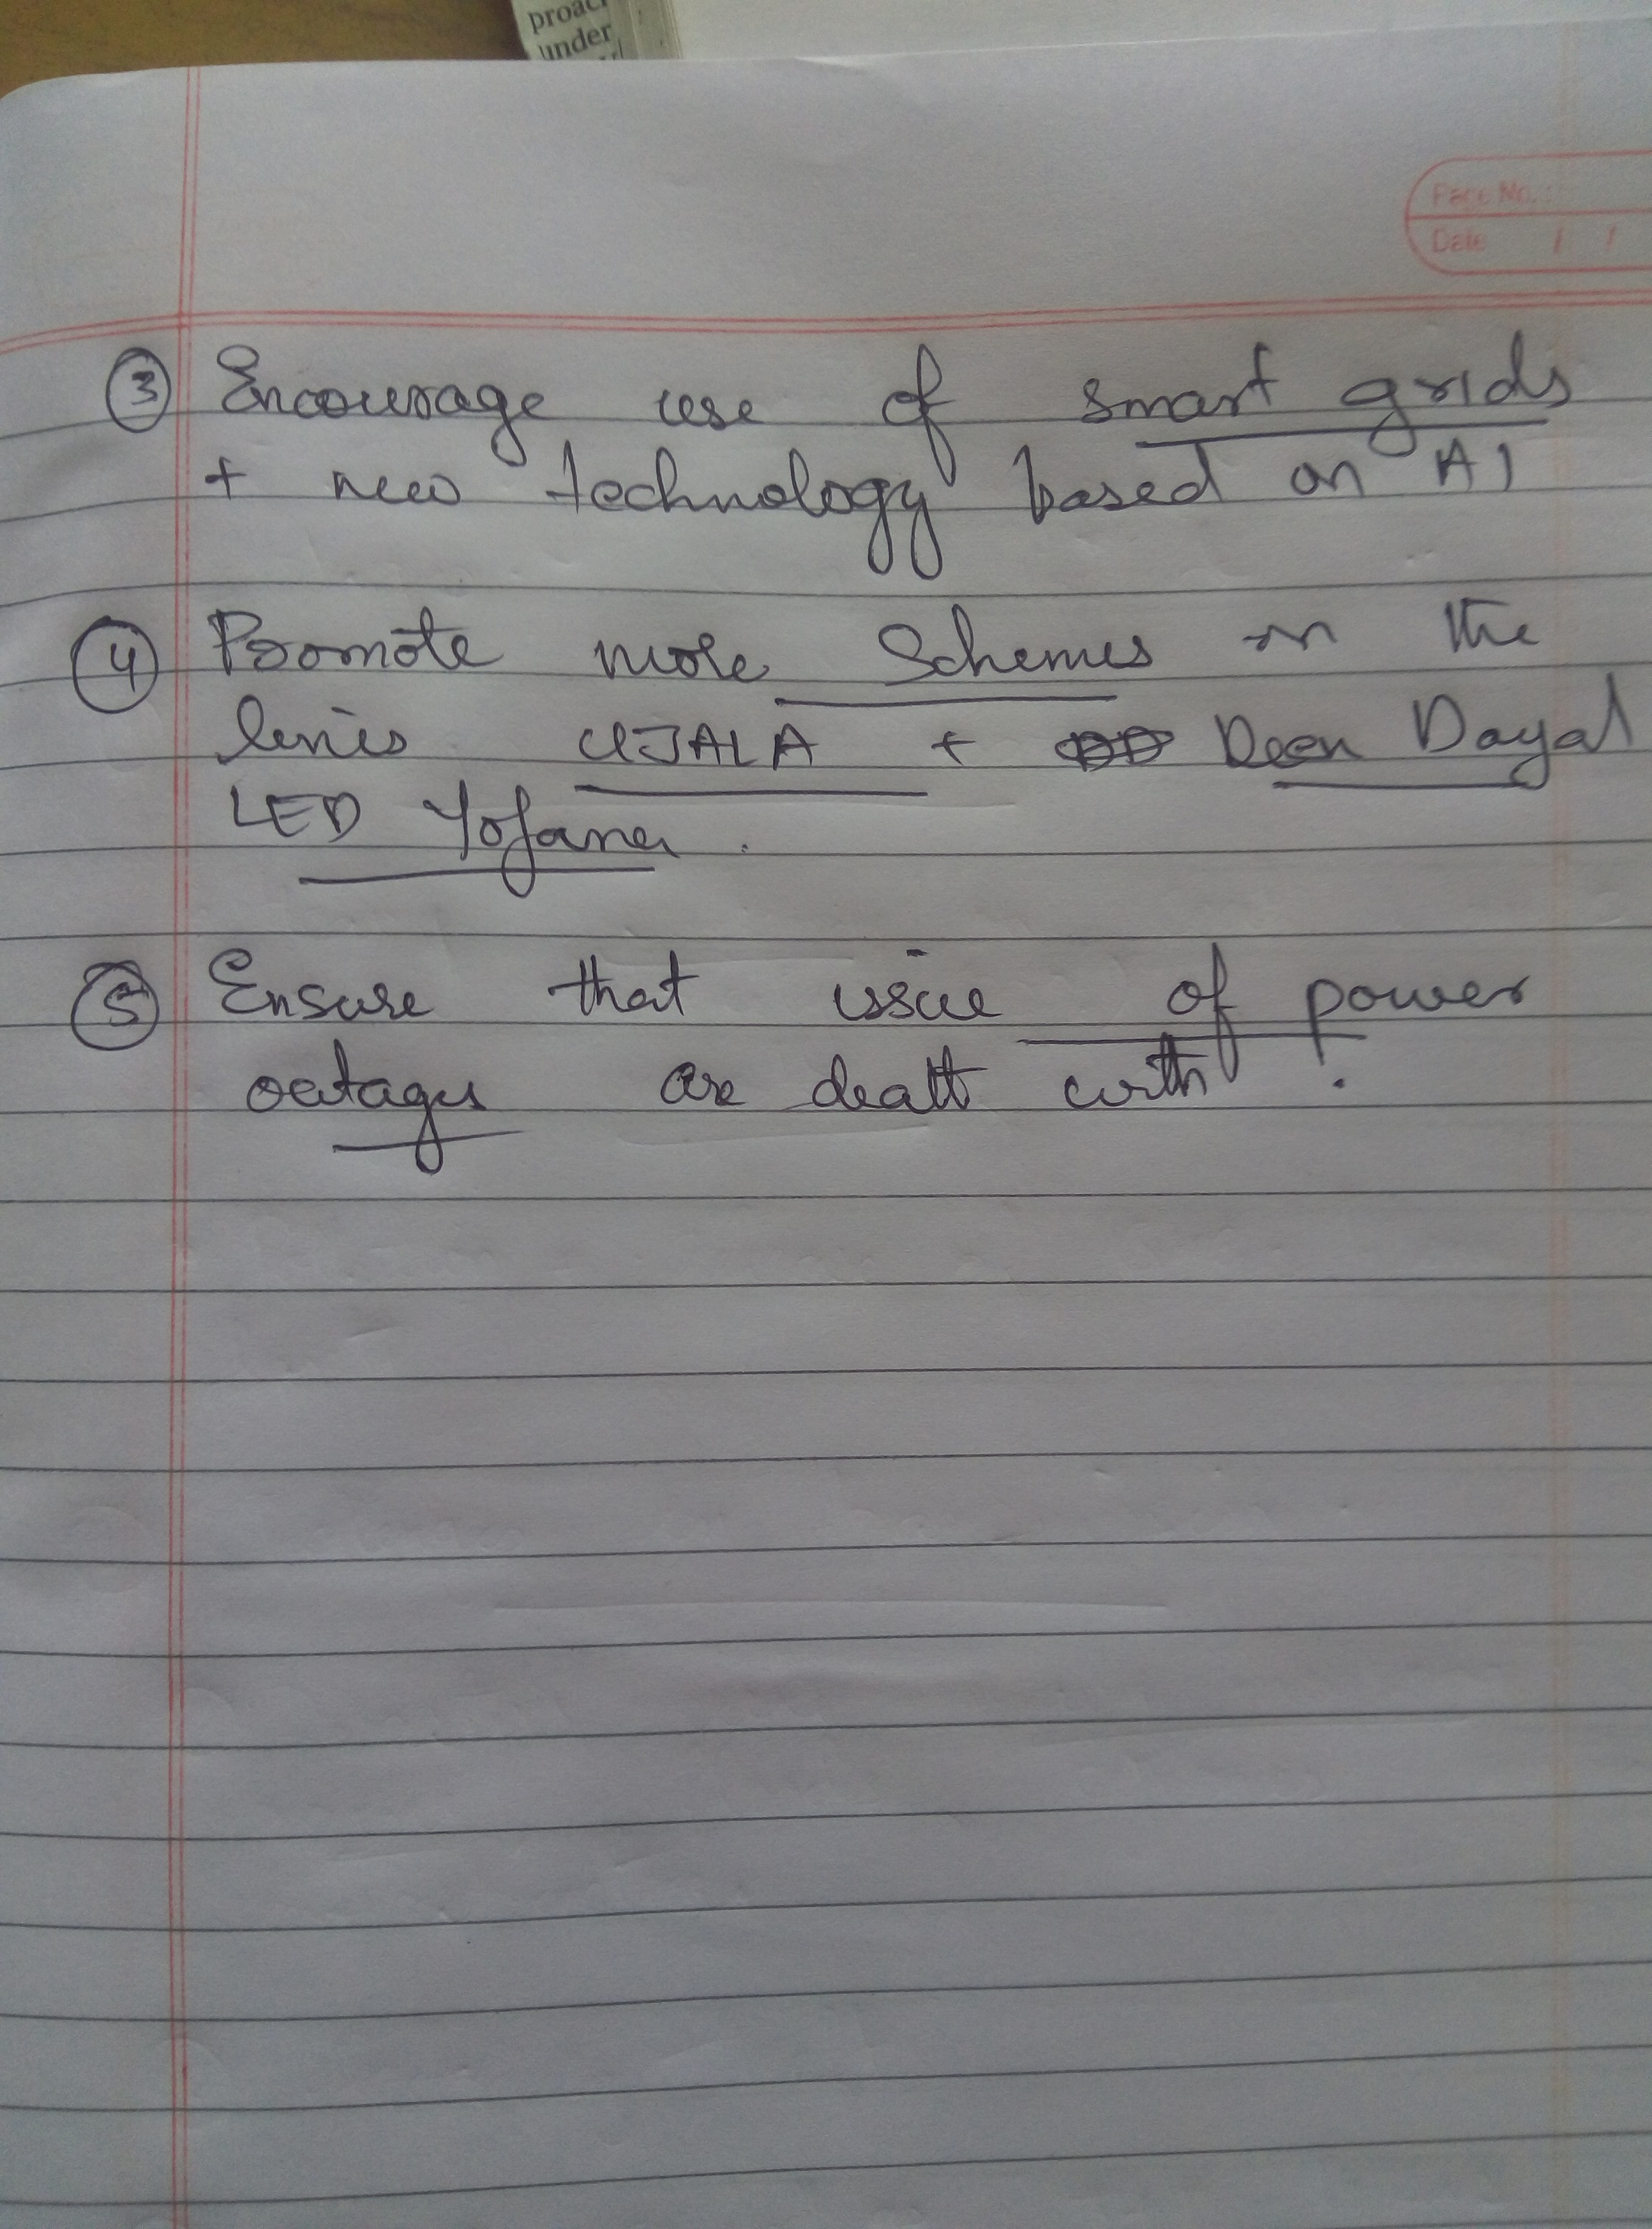 proac
under
Page No.
Date / /
③ Encourage use of smart grids
+ new technology based on AI
④ Promote more Schemes on the
lines UJALA + Deen Dayal
LED Yojana.
⑤ Ensure that issue of power
outages are dealt with.